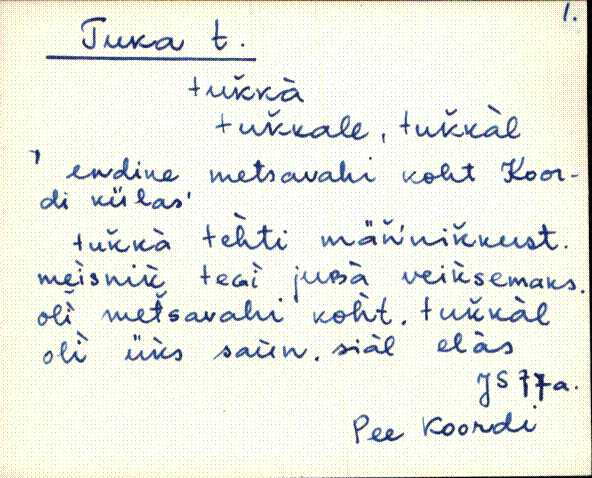 1.
Tuka t.
tuk̆kà
tuk̆kale, tuk̆kàl
' endine metsavahi koht Koor-
di külas'
tuk̆kà tèhti män̆'nik̆kust.
meìsnik̀ teGì juBà veik̀semaks.
olì mets̆avahi koh̀t. tuk̆kàl
olì ük̀s saùn. siàl elàs
JS 77a.
Pee Koordi